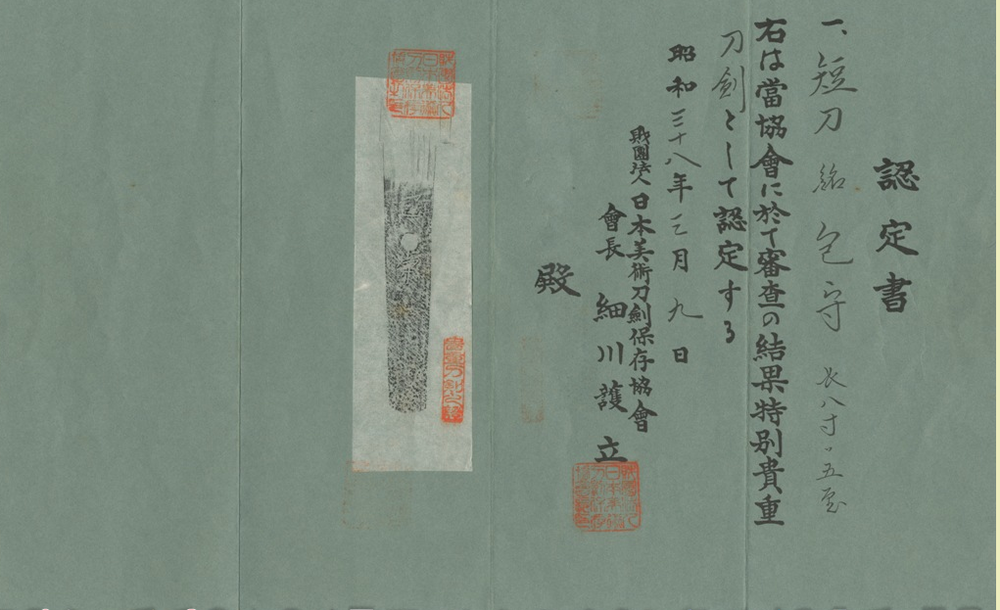 認定書
一、短刀 銘 包守 長八寸〃五厘
右は當協會に於て審査の結果特別貴重
刀劍として認定する
昭和三十八年三月九日
財團法人日本美術刀劍保存協會
會長 細川護立
殿